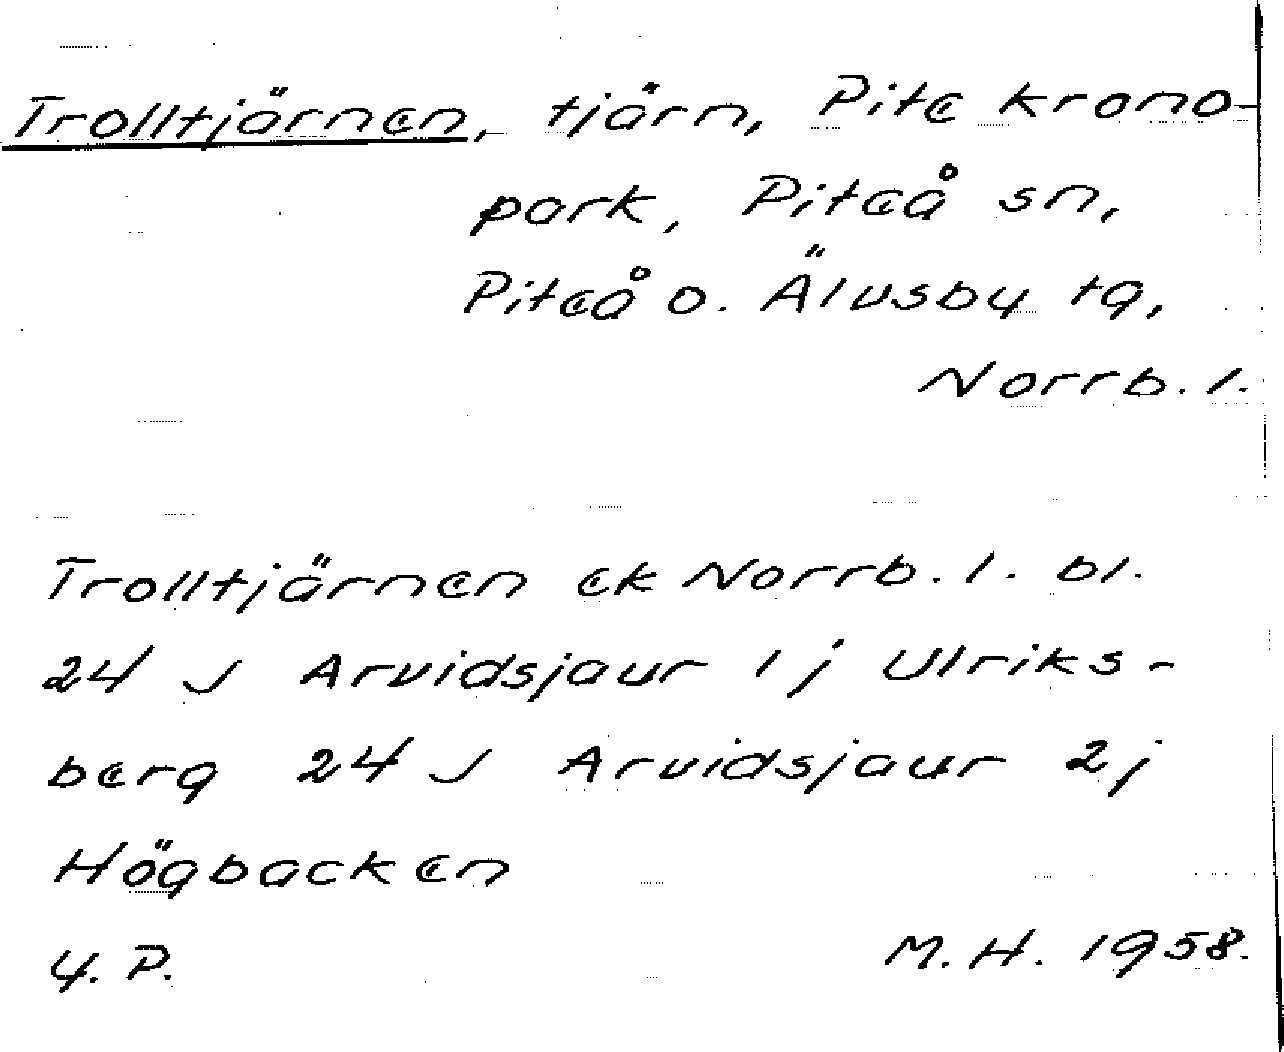 Trolltjärnen, tjärn, Pite krono-
park, Piteå sn,
Piteå o. Älvsby tg,
Norrb. l.
Trolltjärnen ek Norrb. l. bl.
24 J Arvidsjaur 1 j Ulriks-
berg 24 J Arvidsjaur 2j
Högbacken
Y. P. M. H. 1958.